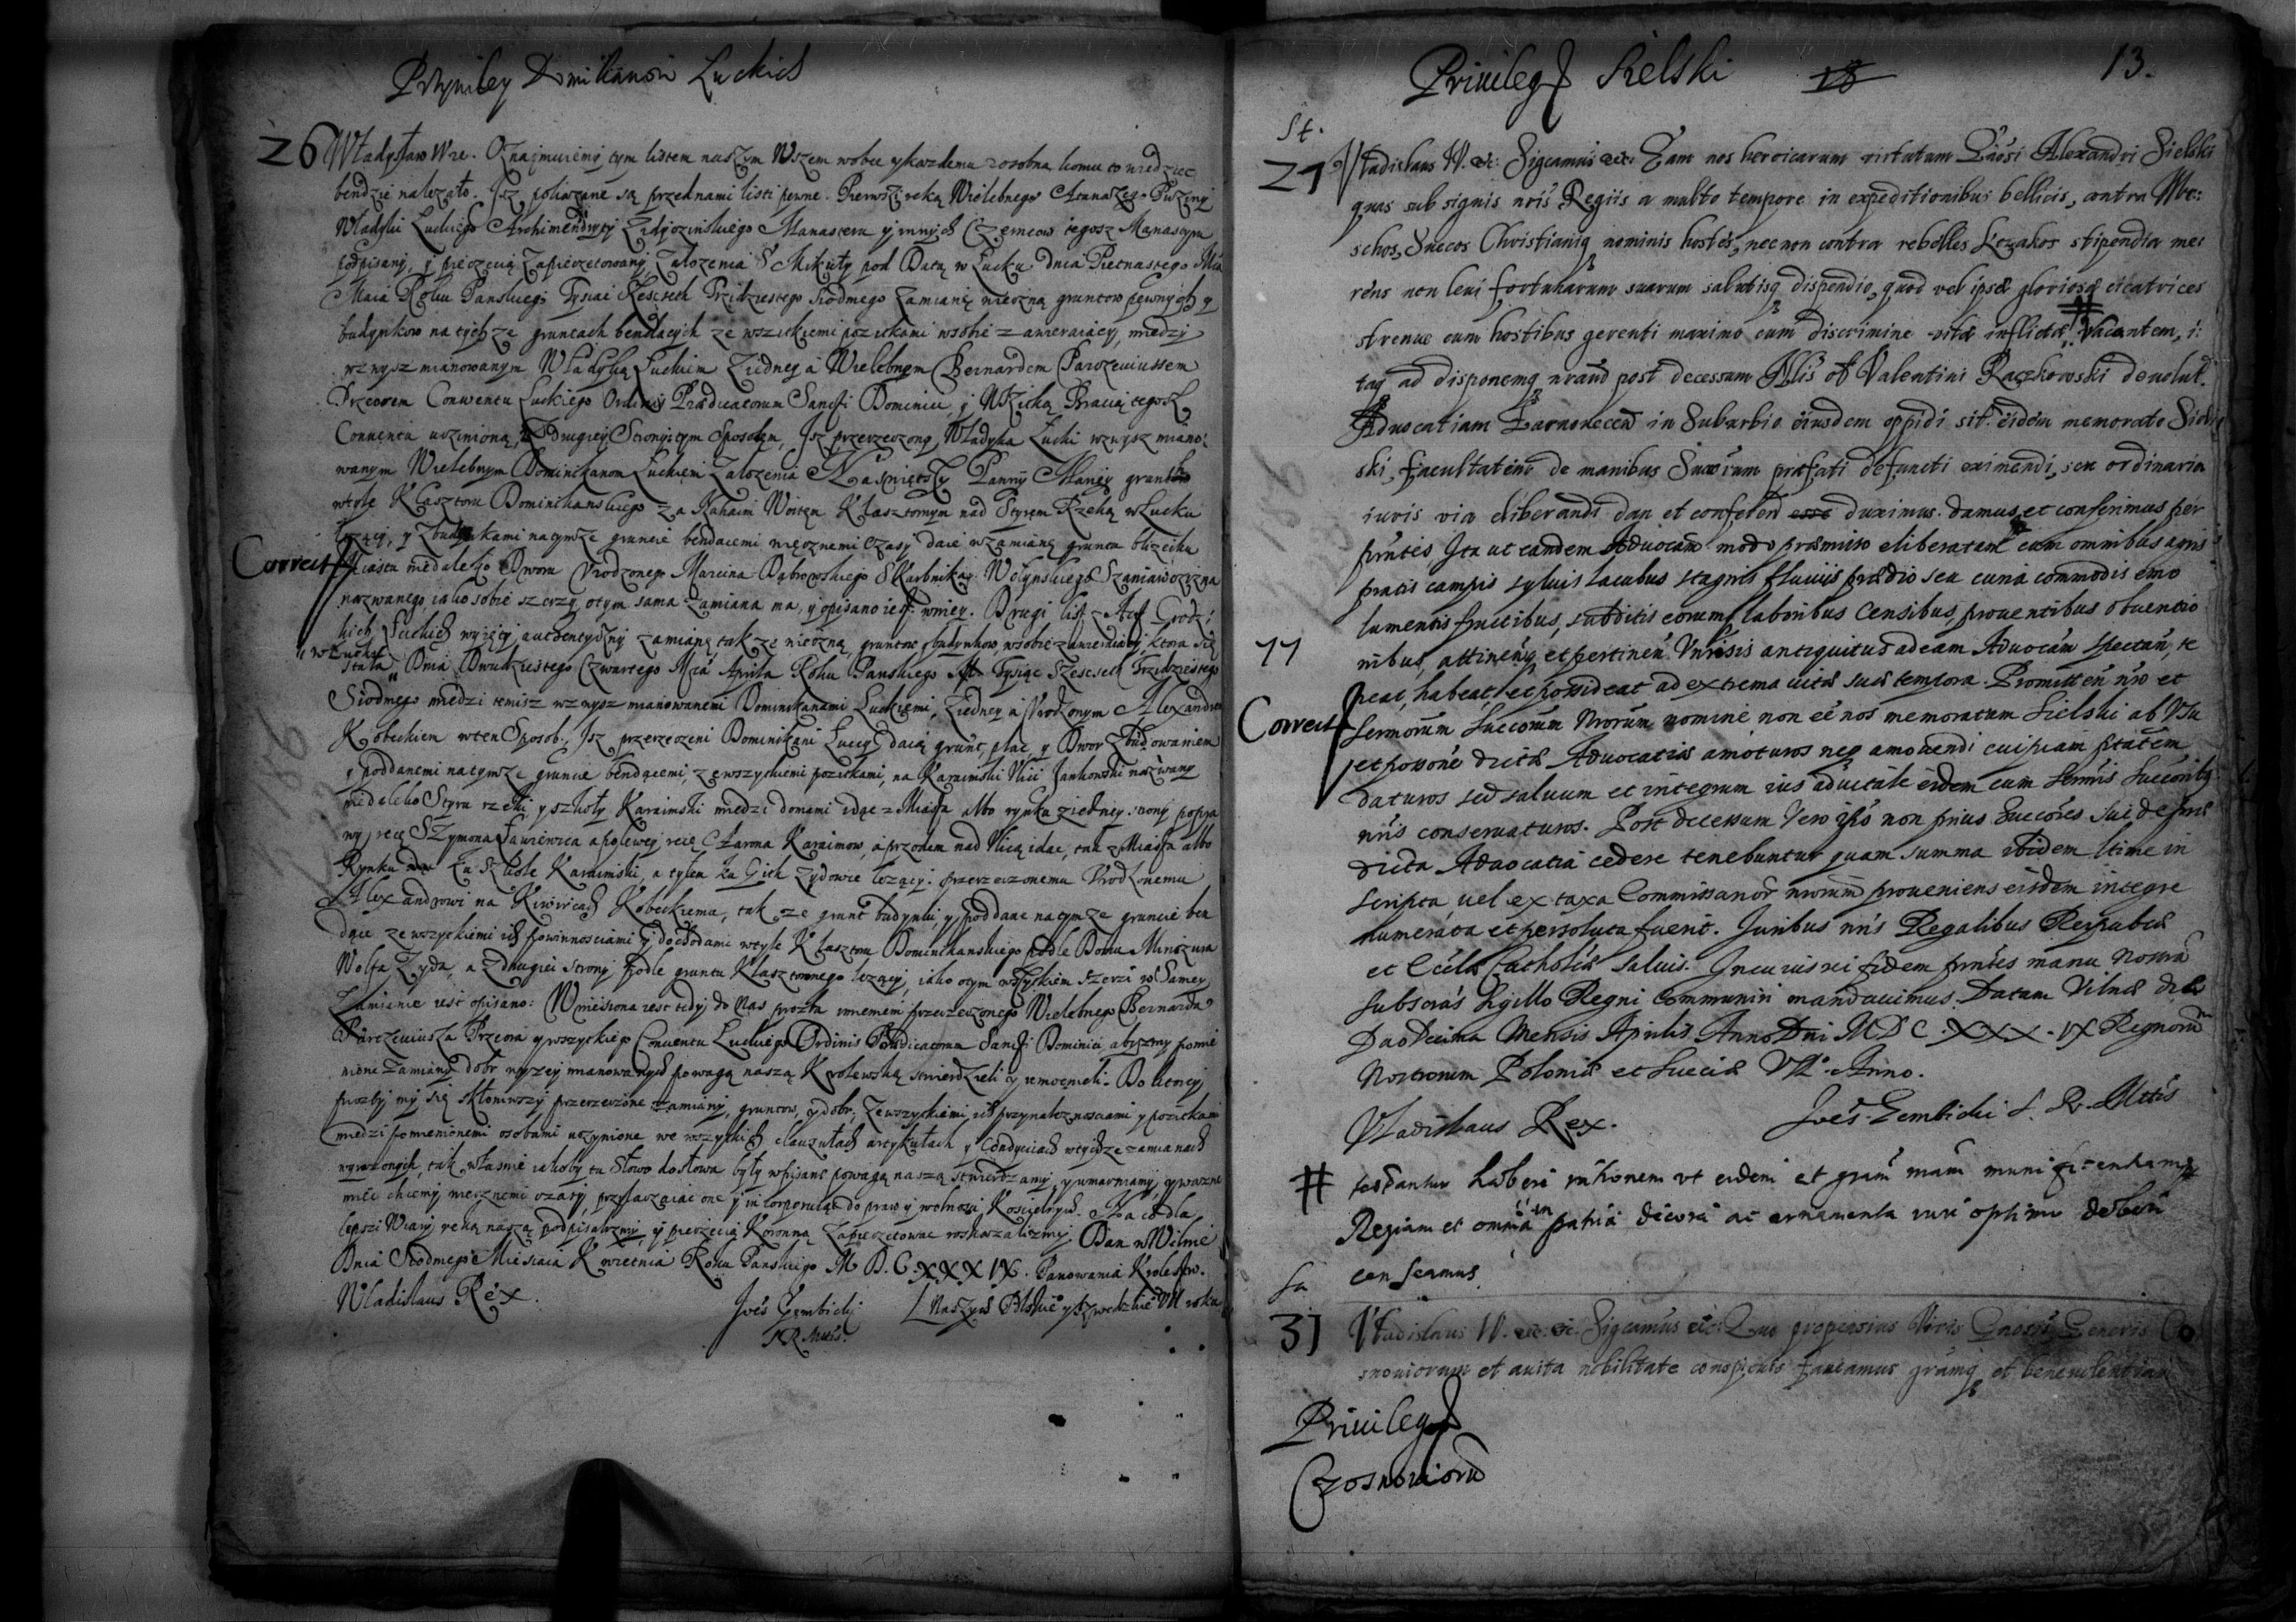 Przywiley Dominikanow Luckich
26 Władysław IV etc. Oznajmuiemy tym listem naszym Wszem wobec y kazdemu zosobna komu to wiedziec
bendzie nalezało. Jsz pokazane są przed nami listi pewne. Pierwszi ręką Wielebnego Atanazego Puzyny
Władyki Luckiego Archimendryty Zydyczinskiego Manasteru y innych Czerncow tegosz Manastyra
podpisany, y pieczęcią zapieczetowany, Załozenia S Mikuły pod Datą w Łucku dnia Pietnastego Mca
Maia Roku Panskiego Tysiac Szescseth Trzidziestego siodmego zamianę wieczną gruntow pewnych y
budynkow na tychze gruntach bendących ze wszitkiemi pozitkami w sobie zawieraiący, miedzi
wzwysz mianowanym Władyką Łuckim Ziedney a Wielebnym Bernardem Parczewiussem
Przeorem Conwentu Luckiego Ordinis Prædicatorum Sancti Dominici, y Wszitką Bracią tegosz
Conuentu uczinioną, z Drugiey Strony tym Sposobem, Jsz przerzeczony Władyka Łucki wzwysz miano,
wanym Wielebnym Dominikanom Łuckiem Załozenia Naswiętszy Panny Mariey grunt
wtyle Klasztoru Dominikanskiego za Kahaim Woitem Klasztornym nad Styrem Rzeką w Łucku
lezący, y z budynkami na tymze gruncie bendacemi wiecznemi czasy daie w zamianę gruntu blizeiku
Correct Miasta niedaleko Dworu Vrodzonego Marcina Dąbrowskiego Skarbnika Wołynskiego Szaniawsczizna
nazwanego, iako sobie szerzy o tym sama zamiana ma, y opisano iest w niey. Drugi list z Act Grodz,
kich Luckich wyięty autentyczny zamianę takze wieczną, gruntow y budynkow w sobie zawieraiący, ktora się
w Lucku
stała Dnia Dwudziestego Czwartego Mca Aprila Roku Panskiego Tysiąc Szescseth Trzidziestego
Siodmego miedzi temisz wzwysz mianowanemi Dominikanami Luckiemi, Ziedney a Vrodzonym Alexandrem
Kobeckiem w ten Sposob, Jsz przerzeczeni Dominikani Luccy daią grunt, plac y Dwor z budowaniem
y poddanemi na tymze gruncie bendącemi, ze wszyckiemi pozitkami, na Karaimski Vlici Jankowski nazwany
niedaleko Styru rzeki y szkoły Karaimski miedzi domami idąc z Miasta albo rynku ziedney strony po pra
wy ręce Szymona Łaurewica a po lewey ręcę Aarona Karaimow, a przodem nad Vlicą idąc, tak z Miasta albo
Rynku ku Szkole Karaimski, a tyłem ku Gich Zydowie lezący. przerzeczonemu Vrodzonemu
Alexandrowi na Kiwircach Kobeckiemu, tak ze grunt budynki y poddane na tymze gruncie ben
dące ze wszyckiemi ich powinnosciami y dochodami wtyle Klasztoru Dominikanskiego podle Domu
Wolfa Zyda, a z drugiei strony podle gruntu Klasztornego lezący, iako o tym wszyckiem szerzi w Samey
Zamianie iest opisano: Wniesiona iest tedy do Nas prozba imieniem przerzeczonego Wielebnego Bernarda
Parczewiusza Przeora y wszyckiego Conuentu Luckiego Ordinis Prædicatorum Sancti Dominici abysmy pomie
nione Zamiany dobr wyzey mianowanych powagą naszą Krolewską stwierdzieli y umocnieli. Do ktorey
prozby my się skłoniwszy przerzeczone zamiany, gruntow, y dobr, ze wszyckiemi ich przynaleznosciami y pozitkami
miedzi pomienionemi osobami uczynione we wszyckich clauzułach artykułach y Condyciach w tychze zamianach
wyrazonych, tak własnie iakoby tu Słowo do słowa były wpisane powagą naszą stwierdzamy, y umacniamy, y wazne
miec chcemy wiecznemi czasy, przyłaczaiąc one y in corporuiąc do praw y wolnosci Koscielnych. Na co dla
lepszi Wiary ręką naszą podpisalismy, y pieczecią Koronną Zapieczetowac roskazalismy. Dan w Wilnie
Dnia Siodmego Miesiaca Kwietnia Roku Panskiego M D.C.XXXIX. Panowania Krolestw.
Wladislaus Rex. Joēs Gembicki Naszych Polskie y Szwedzkie VII roku
SR Mttis.
Priuileg Sielski 18 13.
St.
27 Vladislaus IV. etc: Sigcamus etc: Eam nos heroicarum virtutum Gnosi Alexandri Sielski
quas sub signis nris Regiis a multo tempore in expeditionibus bellicis, contra Mo:
schos, Suecos Christianiq nominis hostes, nec non contra rebelles Kozakos stipendia me:
rens non leui fortunarum suarum salutisq dispendio, quod vel ipsæ gloriosæ cicatrices
strenue cum hostibus gerenti maximo cum discrimine vitæ inflictæ, # Vacantem, i:
taq ad disponemq nrand post decessum Nlis ol Valentini Raczkowski deuolut.
Aduocatiam Tarnonecen in Suburbio eiusdem oppidi sit. eidem memorato Siel,
ski, facultatem de manibus Suorum præfati defuncti eximendi, seu ordinaria
iuris via eliberandi dan et conferen esse duximus. damus et conferimus per
prntes Ita ut eandem Aduocam modo præmisso eliberatam cum omnibus agris
pratis campis syluis lacubus stagnis fluuiis prædio seu curia commodis emo
lumentis fructibus, subditis eorum laboribus Censibus, prouentibus obuentio
nibus, attinenq et pertinen Vnisis antiquitus ad eam Aduocam spectan, te
77
neat, habeat, et possideat ad extrema vitæ suæ tempora. Promitten nro et
Correct Sermorum Succorum Nrorum nomine non ee nos memoratum Sielski ab Vsu
et possone dictæ Aduocatiæ amoturos neq amouendi cuipiam ptatem
daturos sed saluum et integrum ius aduitale eidem cum Sermis Succorib
nris conseruaturos. Post decessum vero ipso non prius Succores Sui de præ
dicta Aduocatia cedere tenebuntur quam summa ibidem ltime in
scripta, vel ex taxa Commissanor nrorum proueniens eisdem integre
numerata et persoluta fuerit. Juribus nris Regalibus Reipubcæ
et Ecclæ Catholicæ saluis. In cuius rei fidem prntes manu Nostra
subscras sigillo Regni Communiri mandauimus. Datum Vilnæ die
Duodecima Mensis Aprilis Anno Dni MDC.XXX.IX Regnorum
Nostrorum Poloniæ et Sueciæ VII. Anno.
Vladislaus Rex. Joēs Gembicki S. R. Mttis
# testantur haberi rationem vt eidem et gram nram munificentiamq
Regiam et omnia in patria decora ac ornamenta iure optimo deberi
censeamus
Sa
31 Vladislaus IV. etc. etc. Sigcamus etc: Quo propensius Viris Gnosis Generis Co
snoviorum et auita nobilitate conspicuis faueamus gramq et beneuolentiam
Priuileg
Czosnoviorum